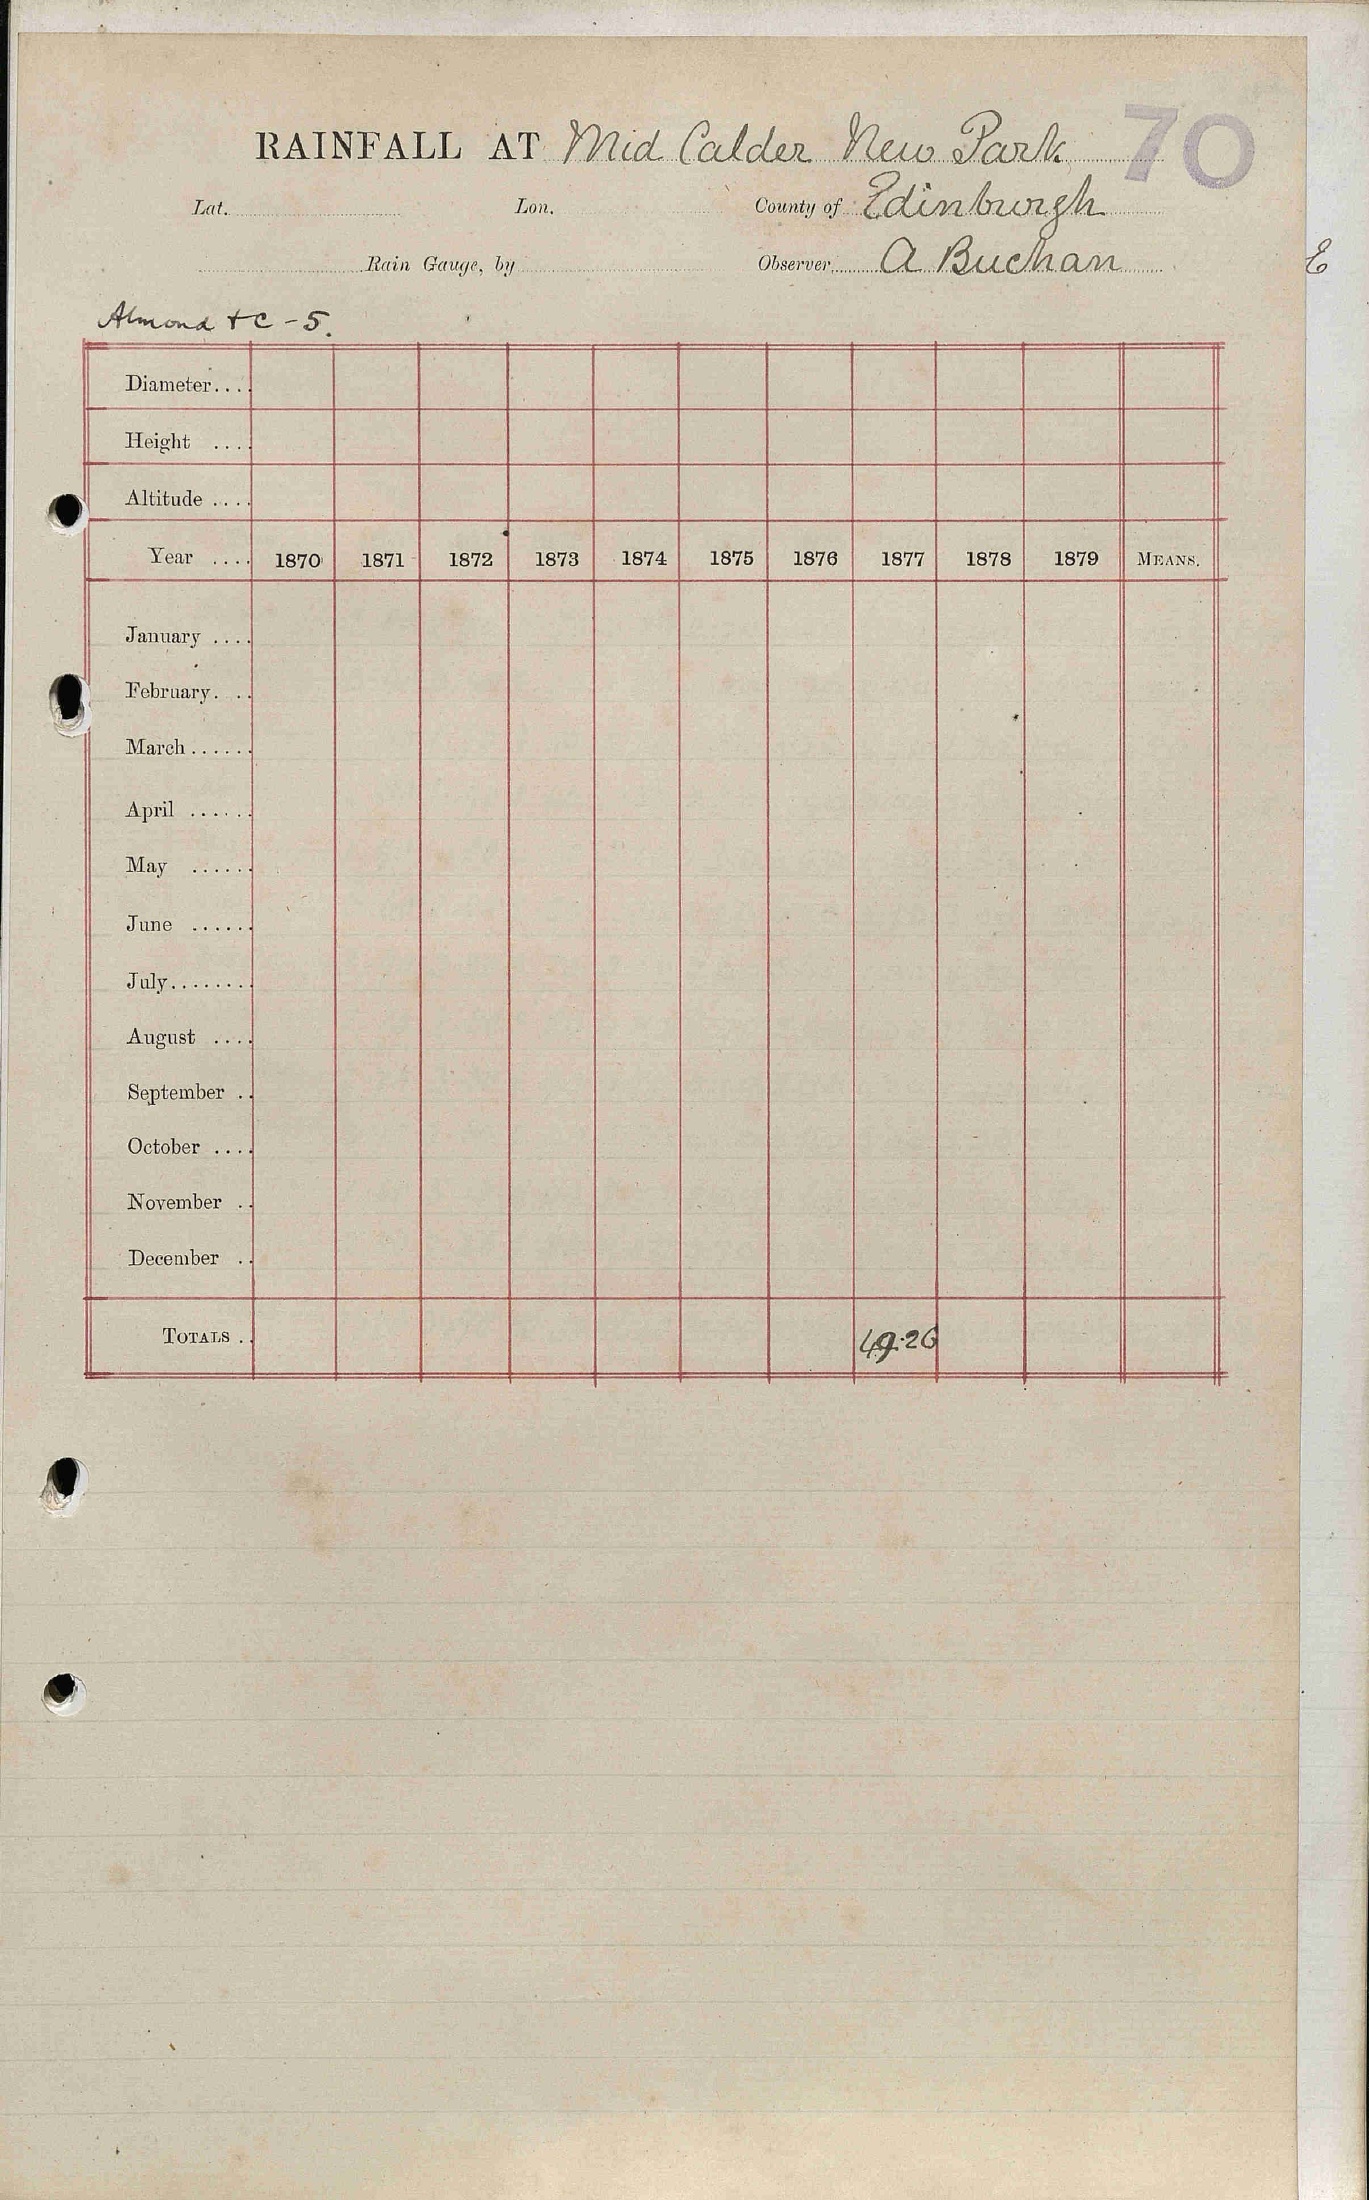 RAINFALL AT Mid Calder New Park 70
Lat. Lon. County of Edinburgh
Rain Gauge, by Observer A Buchan
E
Almond + C - 5.
Diameter....
Height ....
Altitude ....
Year .... 1870 1871 1872 1873 1874 1875 1876 1877 1878 1879 MEANS.
January ....
February. ..
March ......
April ......
May ......
June ......
July........
August ....
September ..
October ....
November ..
December ..
TOTALS .. 49.26